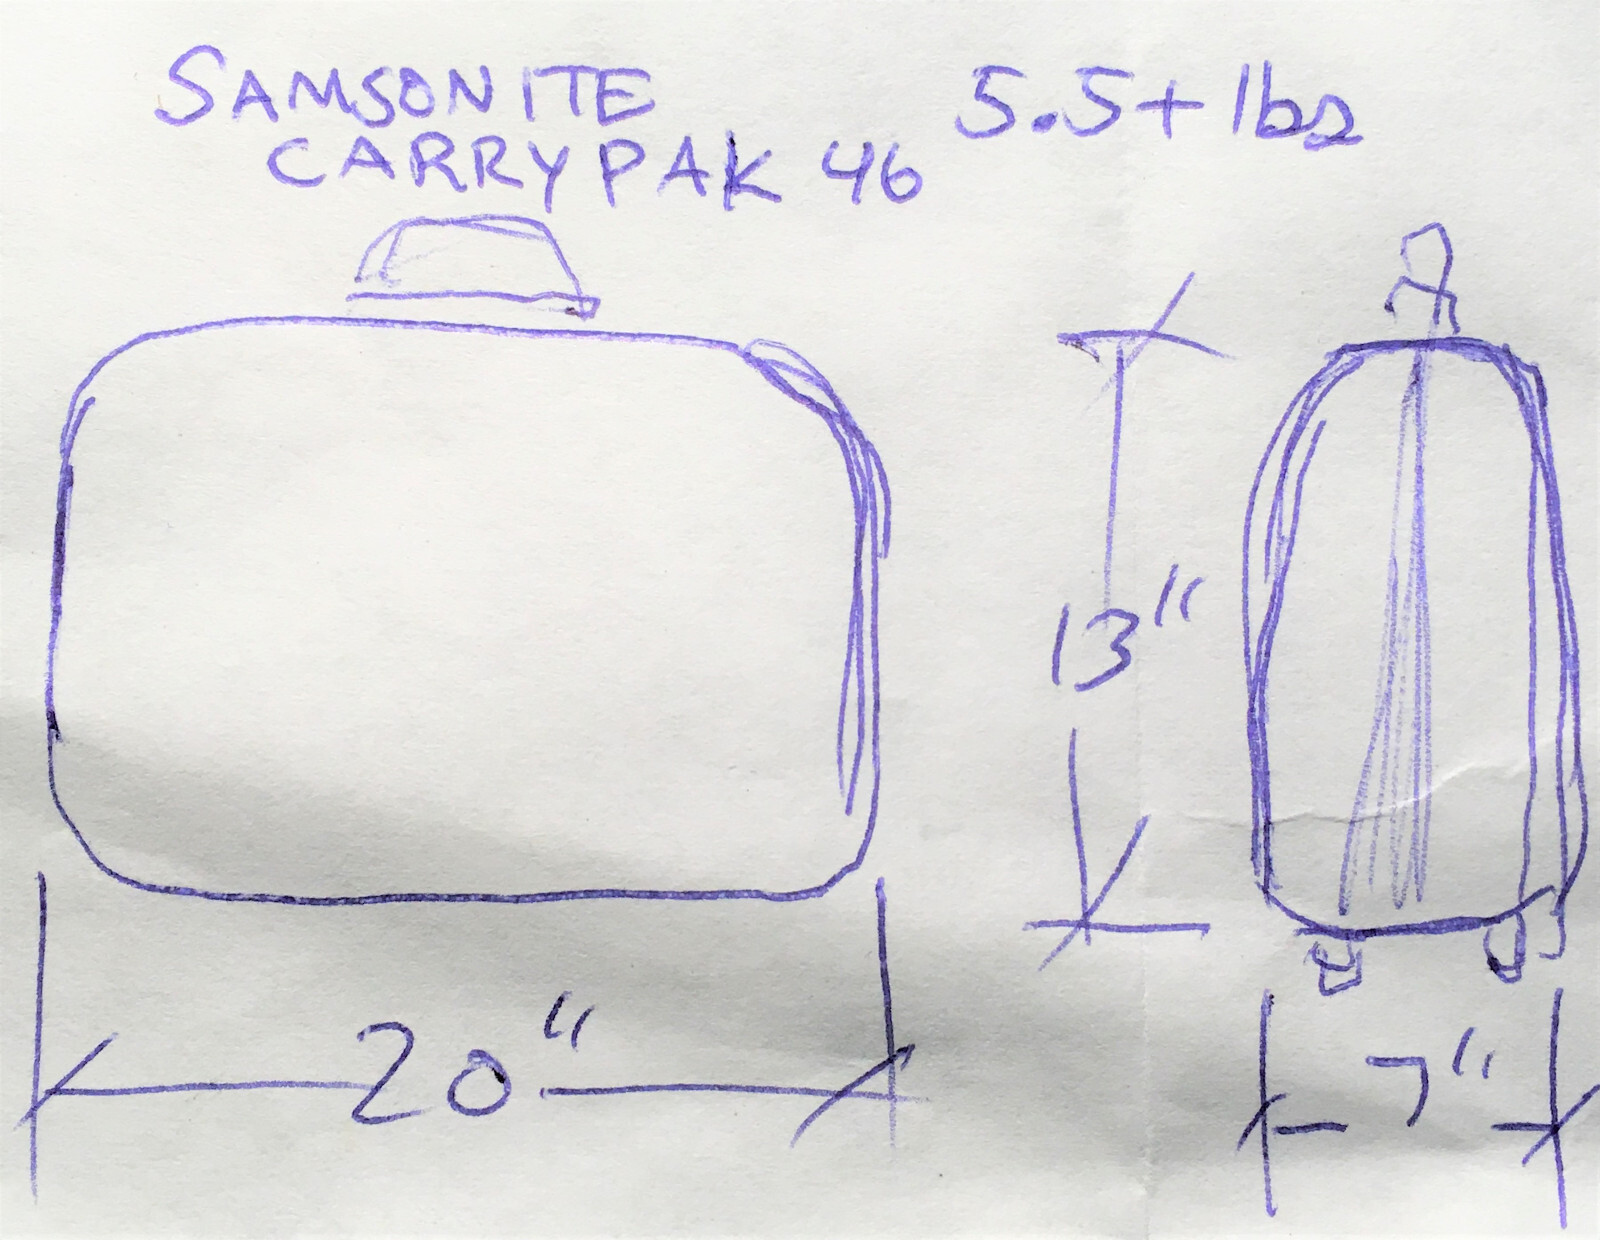 SAMSONITE
CARRY PAK 46
5.5+ lbs
13"
20"
7"